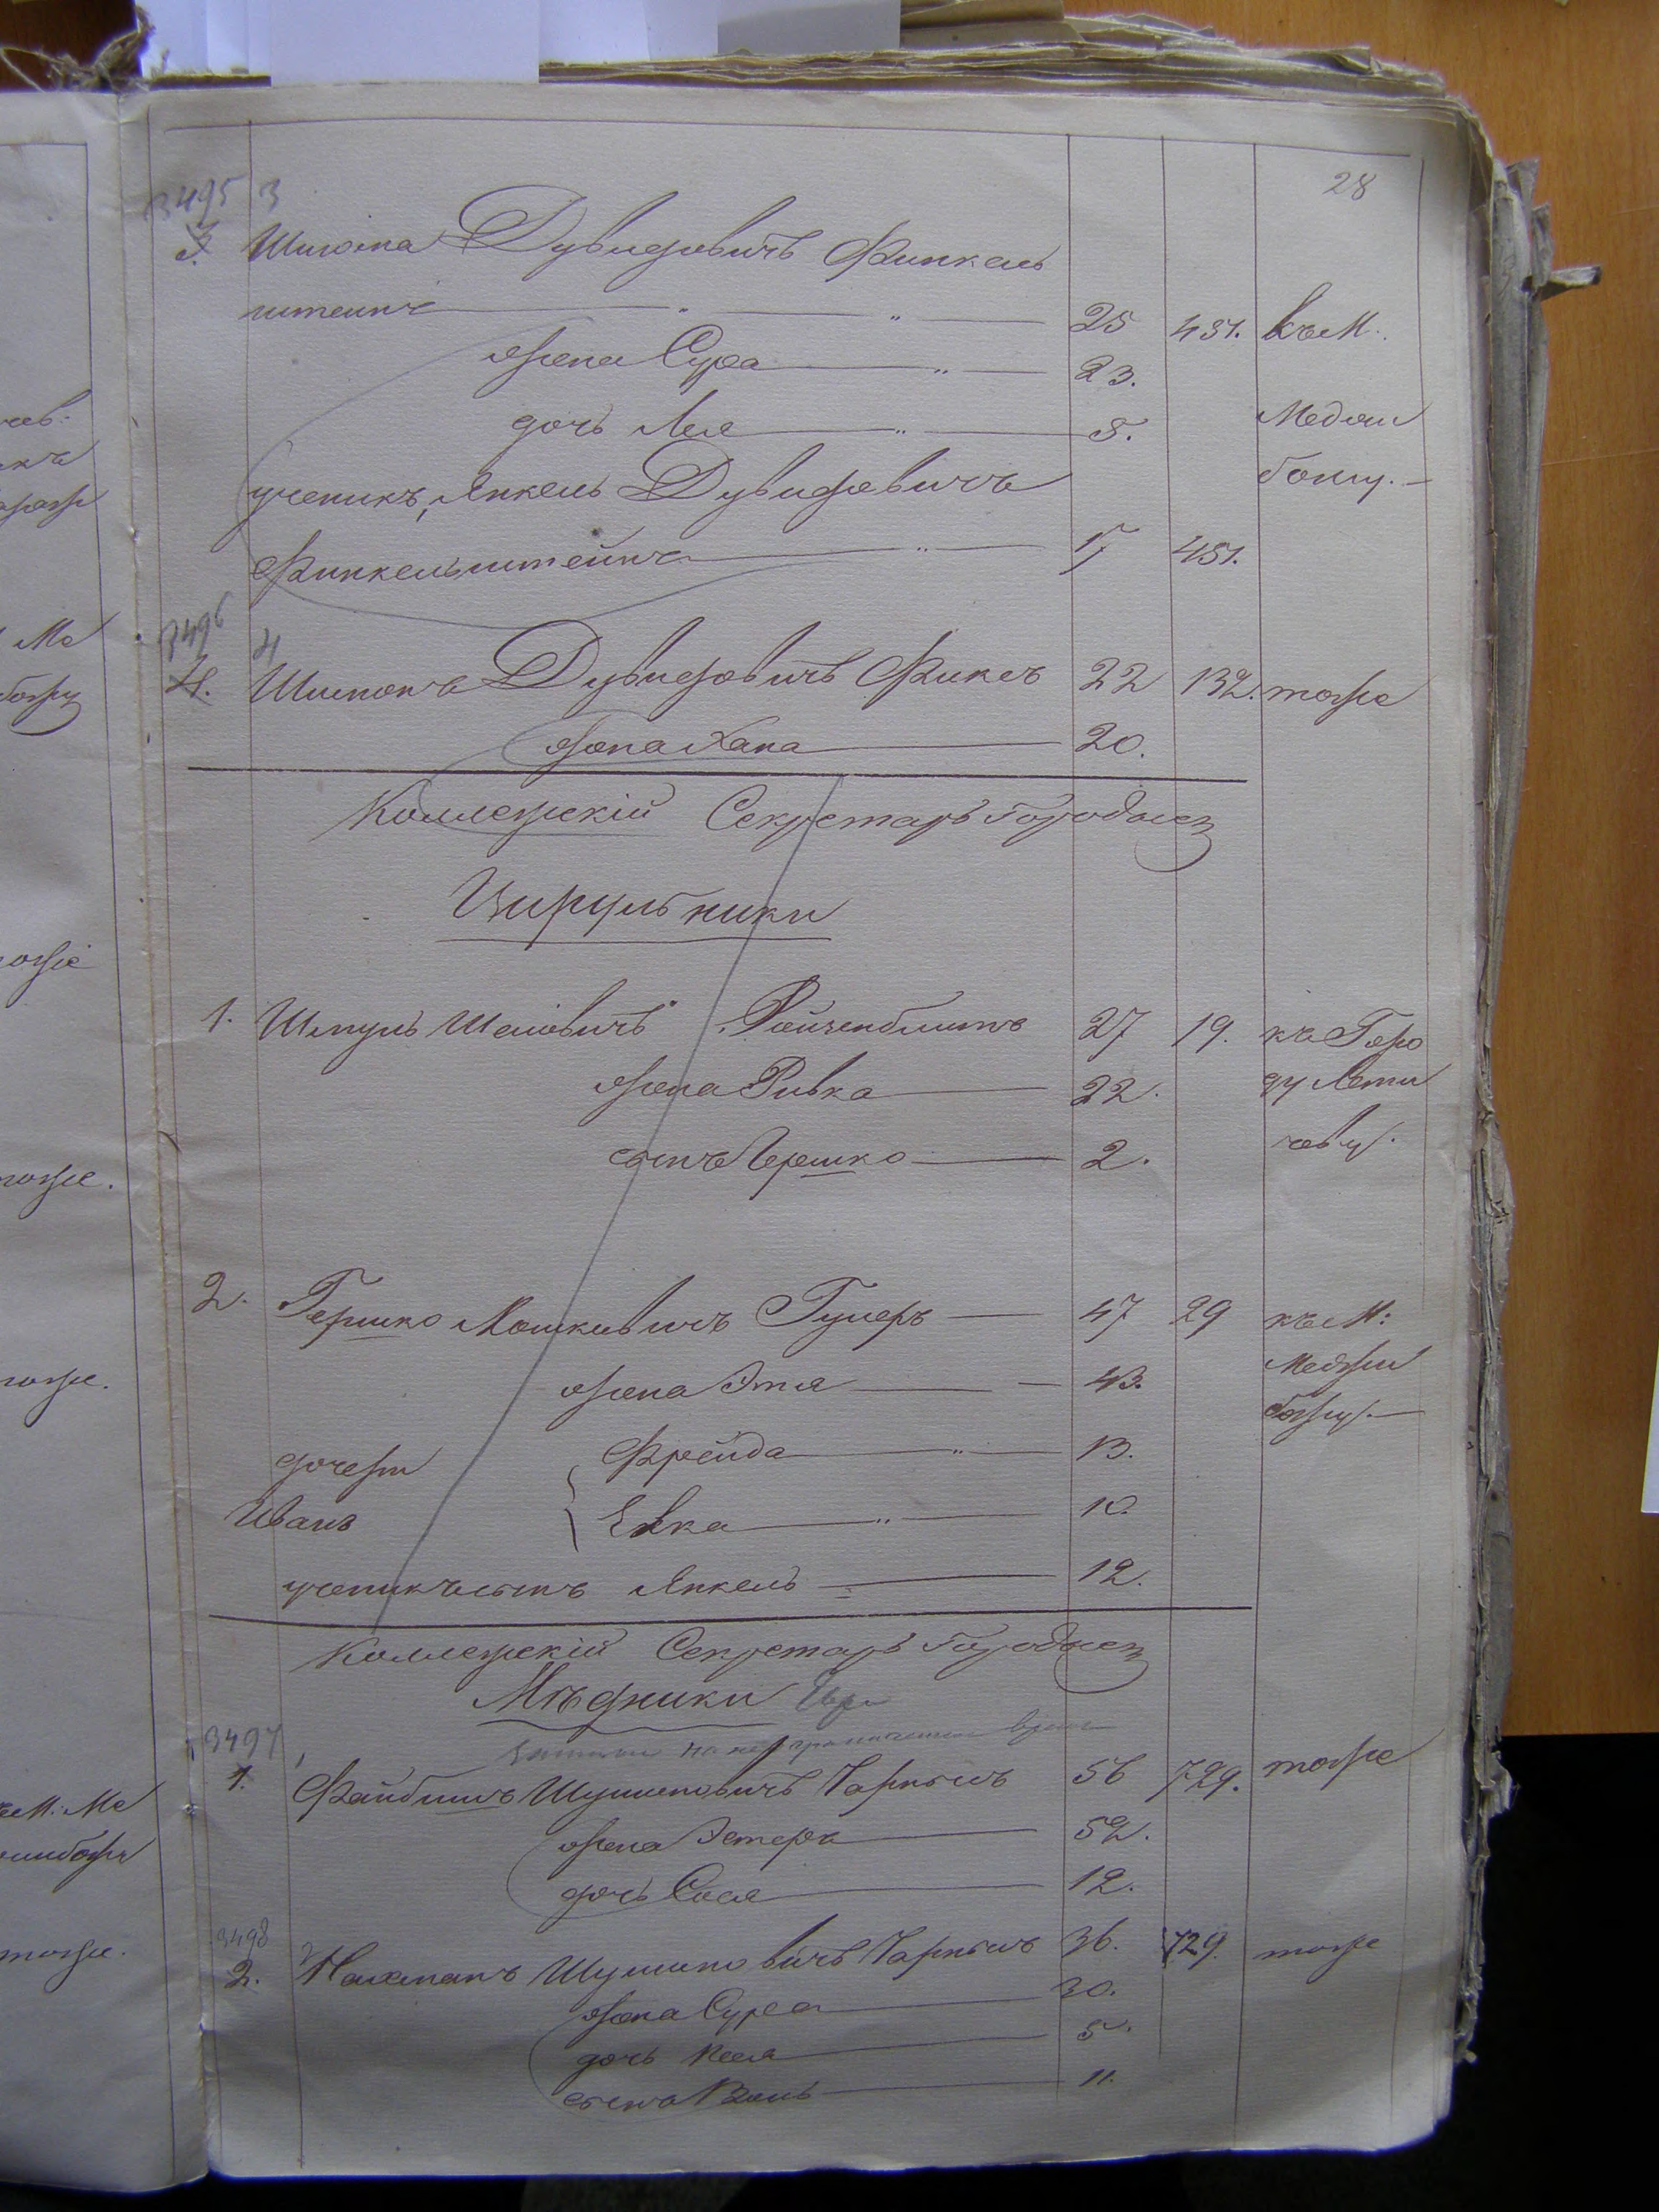 28
3495 3
3. Шліома Дувидовичъ Финкель
штейнъ 25 451. къ М.
жена Сура 23.
дочь Лея 5. Меджи
ученикъ, Янкель Дувидовичъ божу.
Финкельштейнъ 17 451.
3496 4
4. Шимонъ Дувидовичъ Фиксъ 22 132. тоже
жена Хана 20.
Коллежскій Секретарь
Цирульники
1. Шмуль Шаіовичъ Ройзенблитъ 27 19. къ Горо
жена Ривка 22. ду Лети
сынъ Гершко 2. чеву.
2. Гершко Мошковичъ Гулеръ 47 29 къ М:
жена Этя 43. Меджи
дочери Фрейда 13. божу.
Ивавъ Евка 10.
ученикъ сынъ Янкель 12.
Коллежскій Секретарь
Мѣдники
3497 1
1. Файбишъ Шулимовичъ Чарнышъ 56 729. тоже
жена Эстера 52.
дочь Сося 12.
3498 2
2. Нахманъ Шулимовичъ Чарнышъ 36. 729. тоже
жена Сура 30.
дочь 5.
сынъ 11.